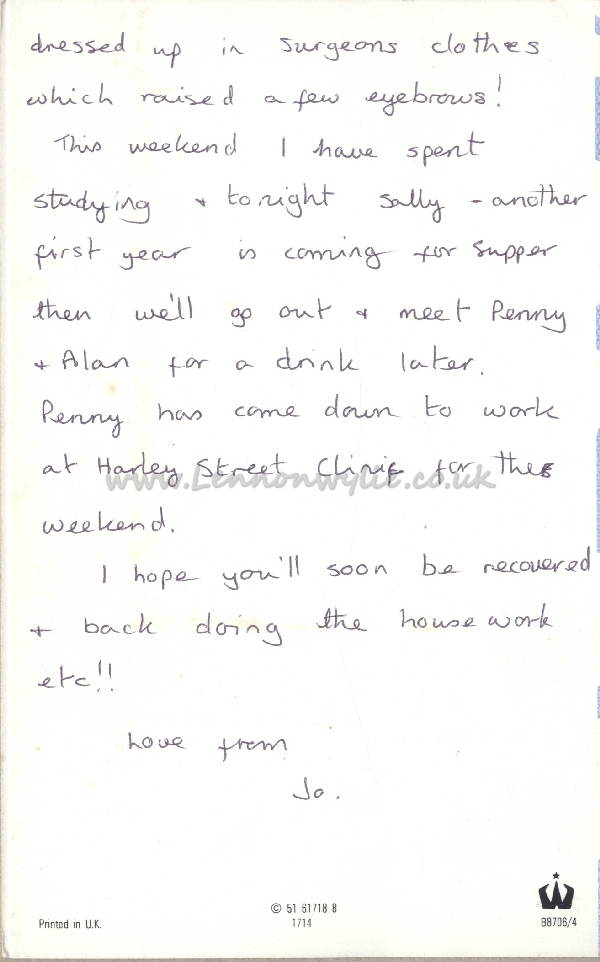 dressed up in surgeons clothes
which raised a few eyebrows!
This weekend I have spent
studying + tonight Sally - another
first year is coming for supper
then we'll go out + meet Penny
+ Alan for a drink later.
Penny has come down to work
at Harley Street Clinic for the
www.Lennonwylie.co.uk
weekend.
I hope you'll soon be recovered
+ back doing the housework
etc!!
Love from
Jo.
© 51 61718 8
Printed in U.K.
1714
B8706/4